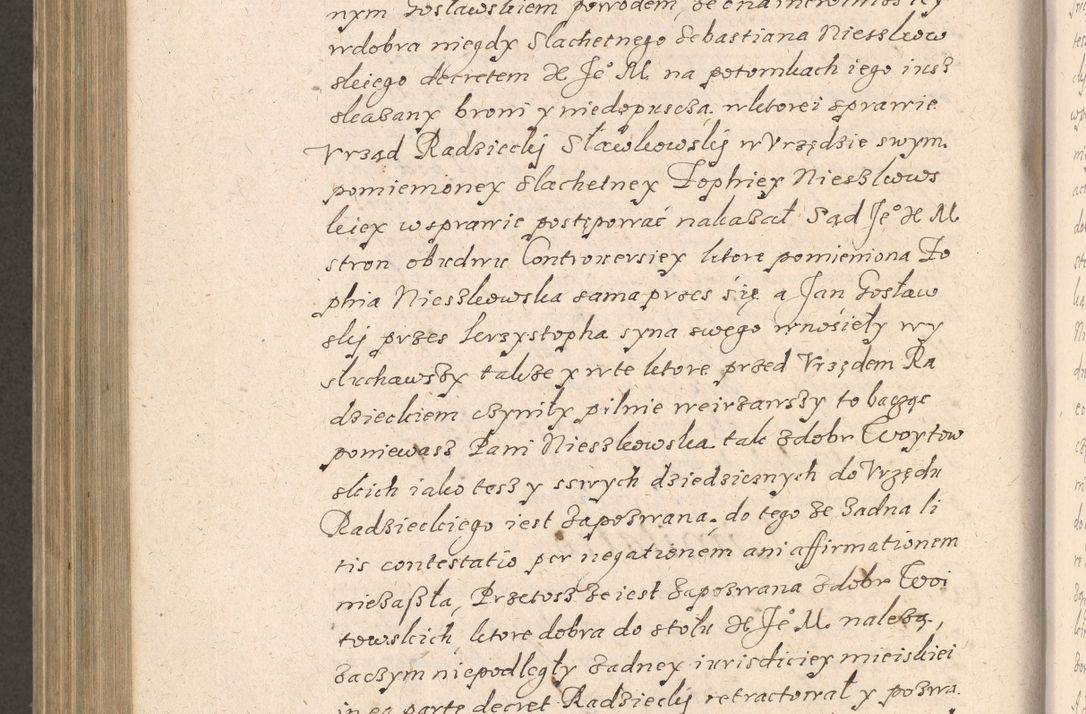 nym Gosławskiem powodem, że ona
w dobra niegdy Slachetnego Sebastiana Nieszkow
skiego decretem X Je° M na potomkach iego iusz
skazany broni y niedopuscza, w ktorei sprawie
Vrząd Radziecky Sławkowsky w Vrzędzie swym
pomienioney Slachetney Zophiey Nieszkows
kiey w sprawie postępować nakazał Sąd Je° X M
stron obudwu Controuersiey ktore pomieniona Zo
phia Nieszkowska sama przes się a Jan Gosław
sky przes Krzystopha syna swego wnosieły wy
słuchawszy także y w te ktore przed Vrzędem Ra
dzieckiem czyniły pilnie weirzawszy to bacząc
poniewasz Pani Nieszkowska tak z dobr Woytow
skich iako tesz y sswych dziedzicznych do Vrzędu
Radzieckiego iest zapozwana. do tego że żadna li
tis contestatio per negationem ani affirmationem
niezaszła, Przetosz że iest zapozwana z dobr Woi
towskich, ktore dobra do stołu X Je° M należą,
zaczym niepodległy żadney iurisdiciey mieiskiei
in ea parte decret Radziecky retractował y pozwa